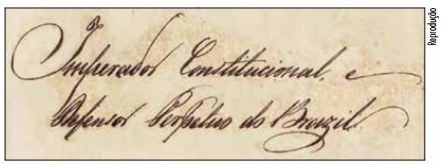 Imperador Constitucional, e
Defensor Perpetuo do Brazil
Reprodução